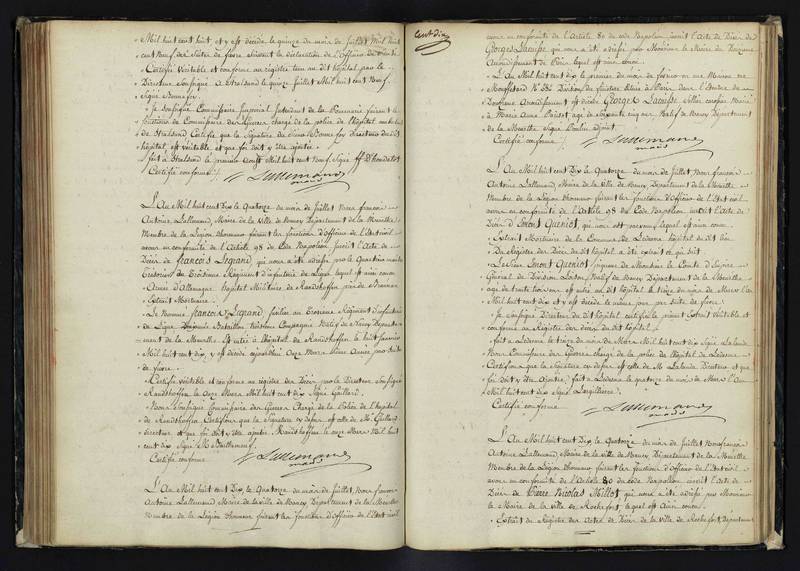 Mil huit cent huit, et y est décédé le quinze du mois de Juillet Mil huit
cent Neuf de suites de fievre suivant la déclaration de l'Officier de Santé
Certifié Véritable et conforme au registre tenu au dit hôpital par le
Directeur Soussigné a Stralsund le quinze Juillet Mil huit cent Neuf.
Signé Bonnefoy
Je soussigné Commissaire Impérial Intendant de la Pomeranie faisant les
fonctions de Commissaire des Guerres chargé de la police de l'hôpital militaire
de Stralsund Certifie que la Signature du Sieur Bonnefoy directeur du dit
hôpital, est véritable et que foi doit y être ajoutée
fait a Stralsund le premier Août Mil huit cent Neuf. Signé
Certifié conforme
Lallemand
maire
L'An Mil huit cent Dix le Quatorze du mois de Juillet Nous françois
Antoine Lallemand, Maire de la Ville de Nancy Département de la Meurthe
Membre de la Légion d'honneur faisant les fonctions d'Officier de l'Etat civil
avons en conformité de l'Article 98 du Code Napoléon inscrit l'Acte de
Décès de françois Legrand qui nous a été adressé par le Quartier maître
Trésorier du Troisième Régiment d'infanterie de Ligne lequel est ainsi conçu
Armée d'Allemagne. hopital Militaire de Ranshoffen près de Braunau
Extrait Mortuaire.
Le Nommé francois Legrand fusilier au Troisieme Régiment d'infanterie
de Ligne Bataillon troisieme Compagnie Natif de Nancy Departe-
ment de la Meurthe Est entré a l'hôpital de Ranshoffen le huit Janvier
Mil huit cent dix, y est décédé le Onze Mars même Année par suite
de fievre.
Certifié véritable et conforme au registre des Décès par le Directeur Soussigné
Ranshoffen le onze Mars Mil huit cent dix Signé Gaillard.
Nous Soussigné Commissaire des Guerres Chargé de la Police de l'hopital
de Ranshoffen Certifions que la Signature ci dessus est celle de Mr Gaillard
directeur et que foi doit y être ajoutée. Ranshoffen le onze Mars Mil huit
cent dix Signé
Certifié conforme
Lallemand
maire
L'An Mil huit cent Dix le Quatorze du mois de Juillet, Nous françois
Antoine Lallemand Maire de la ville de Nancy Département de la Meurthe
Membre de la Légion d'honneur faisant les fonctions d'Officier de l'Etat civil
Cent dix
avons en conformité de l'Article 80 du code Napoléon inscrit l'Acte de Décès de
Georges qui nous a été adressé par Monsieur le Maire du Douzieme
Arrondissement de Paris lequel est ainsi conçu
L'An Mil huit cent dix le premier du mois de
Mouffetard No Division du finistere Eleve a Paris dans l'étendue du
Douzieme Arrondissement est décédé Georges Marié
à Marie Anne age de soixante cinq ans Natif de Nancy departement
de la Meurthe. Signé adjoint.
Certifié conforme
Lallemand
maire
L'An Mil huit cent Dix le Quatorze du mois de Juillet, Nous françois
Antoine Lallemand, Maire de la ville de Nancy, Departement de la Meurthe
Membre de la Légion d'honneur faisant les fonctions d'Officier de l'Etat civil
avons en conformité de l'Article 98 du Code Napoléon inscrit l'Acte de
Décès d' Queniot, qui nous est parvenu, lequel est ainsi conçu
Extrait Mortuaire de la Commune de Ledesma hôpital du dit lieu
Du Registre des Décès du dit hôpital a été extrait ce qui suit
Le Sieur Queniot piqueur de Monsieur le Comte d'Empire
Général de Division Natif de Nancy Département de la Meurthe
age de trente trois ans est entré au dit hôpital le treize du mois de Mars l'An
Mil huit cent dix et y est décédé le même jour par suite de fievre
Je soussigné Directeur du dit hôpital certifie le présent Extrait Véritable et
conforme au Registre des décès du dit hôpital.
fait a Ledesma le treize du mois de Mars Mil huit cent dix Signé Lalande
Nous Commissaire des Guerres chargé de la police de l'hôpital de Ledesma
Certifions que la Signature ci dessus est celle de Mr Lalande Directeur et que
foi doit y être ajoutée / fait a Ledesma le quatorze du mois de Mars l'An
Mil huit cent dix Signé
Certifié conforme
Lallemand
maire
L'An Mil huit cent Dix le Quatorze du mois de Juillet Nous francois
Antoine Lallemand, Maire de la ville de Nancy, Departement de la Meurthe
Membre de la Légion d'honneur faisant les fonctions d'Officier de l'Etat civil
avons en conformité de l'Article 80 du code Napoléon inscrit l'Acte de
Décès de Pierre Nicolas Millot qui nous a été adressé par Monsieur
le Maire de la ville de Rochefort, lequel est ainsi conçu.
Extrait du Registre des Actes de Décès de la ville de Rochefort, Département